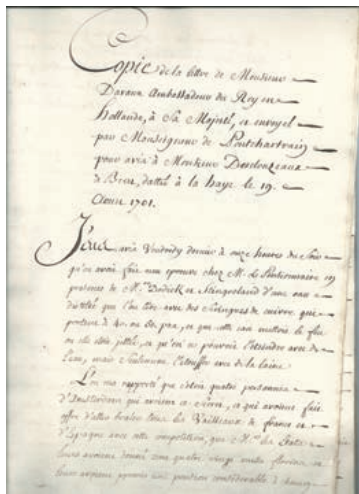 Copie de la lettre de Monsieur
Davaux Ambassadeur du Roy en
hollande, à Sa Majesté, et envoyée
par Monseigneur de Pontchartrain
pour avis à Monsieur Desclouzeaux
de Brest, dattée à la haye le 19.
Avril 1701.
J'eus avis Vendredy dernier à onze heures du Soir
qu'on avoit fait une épreuve chez M. le Pentionnaire en
presence de M. d'une eau
distilée que l'on tire avec des Seringues de cuivre qui
portent à 40. ou 50 pas, et que cette eau mettoit le feu
ou elle étoit jettée, et qu'on ne pouvoit l'éteindre avec de
l'eau, mais Seulement l'étouffer avec de la laine.
L'on m'a rapporté que c'étoit quatre personnes
d'Amsterdam qui avoient ce Secret, et qui avoient fait
offre d'aller bruler tous les Vaisseaux de france et
d'Espagne avec cette composition, que M.rs les Etats
leurs avoient donné cent quatre vingt mille florins, et
leurs avoient promis une pension considérable à chacun